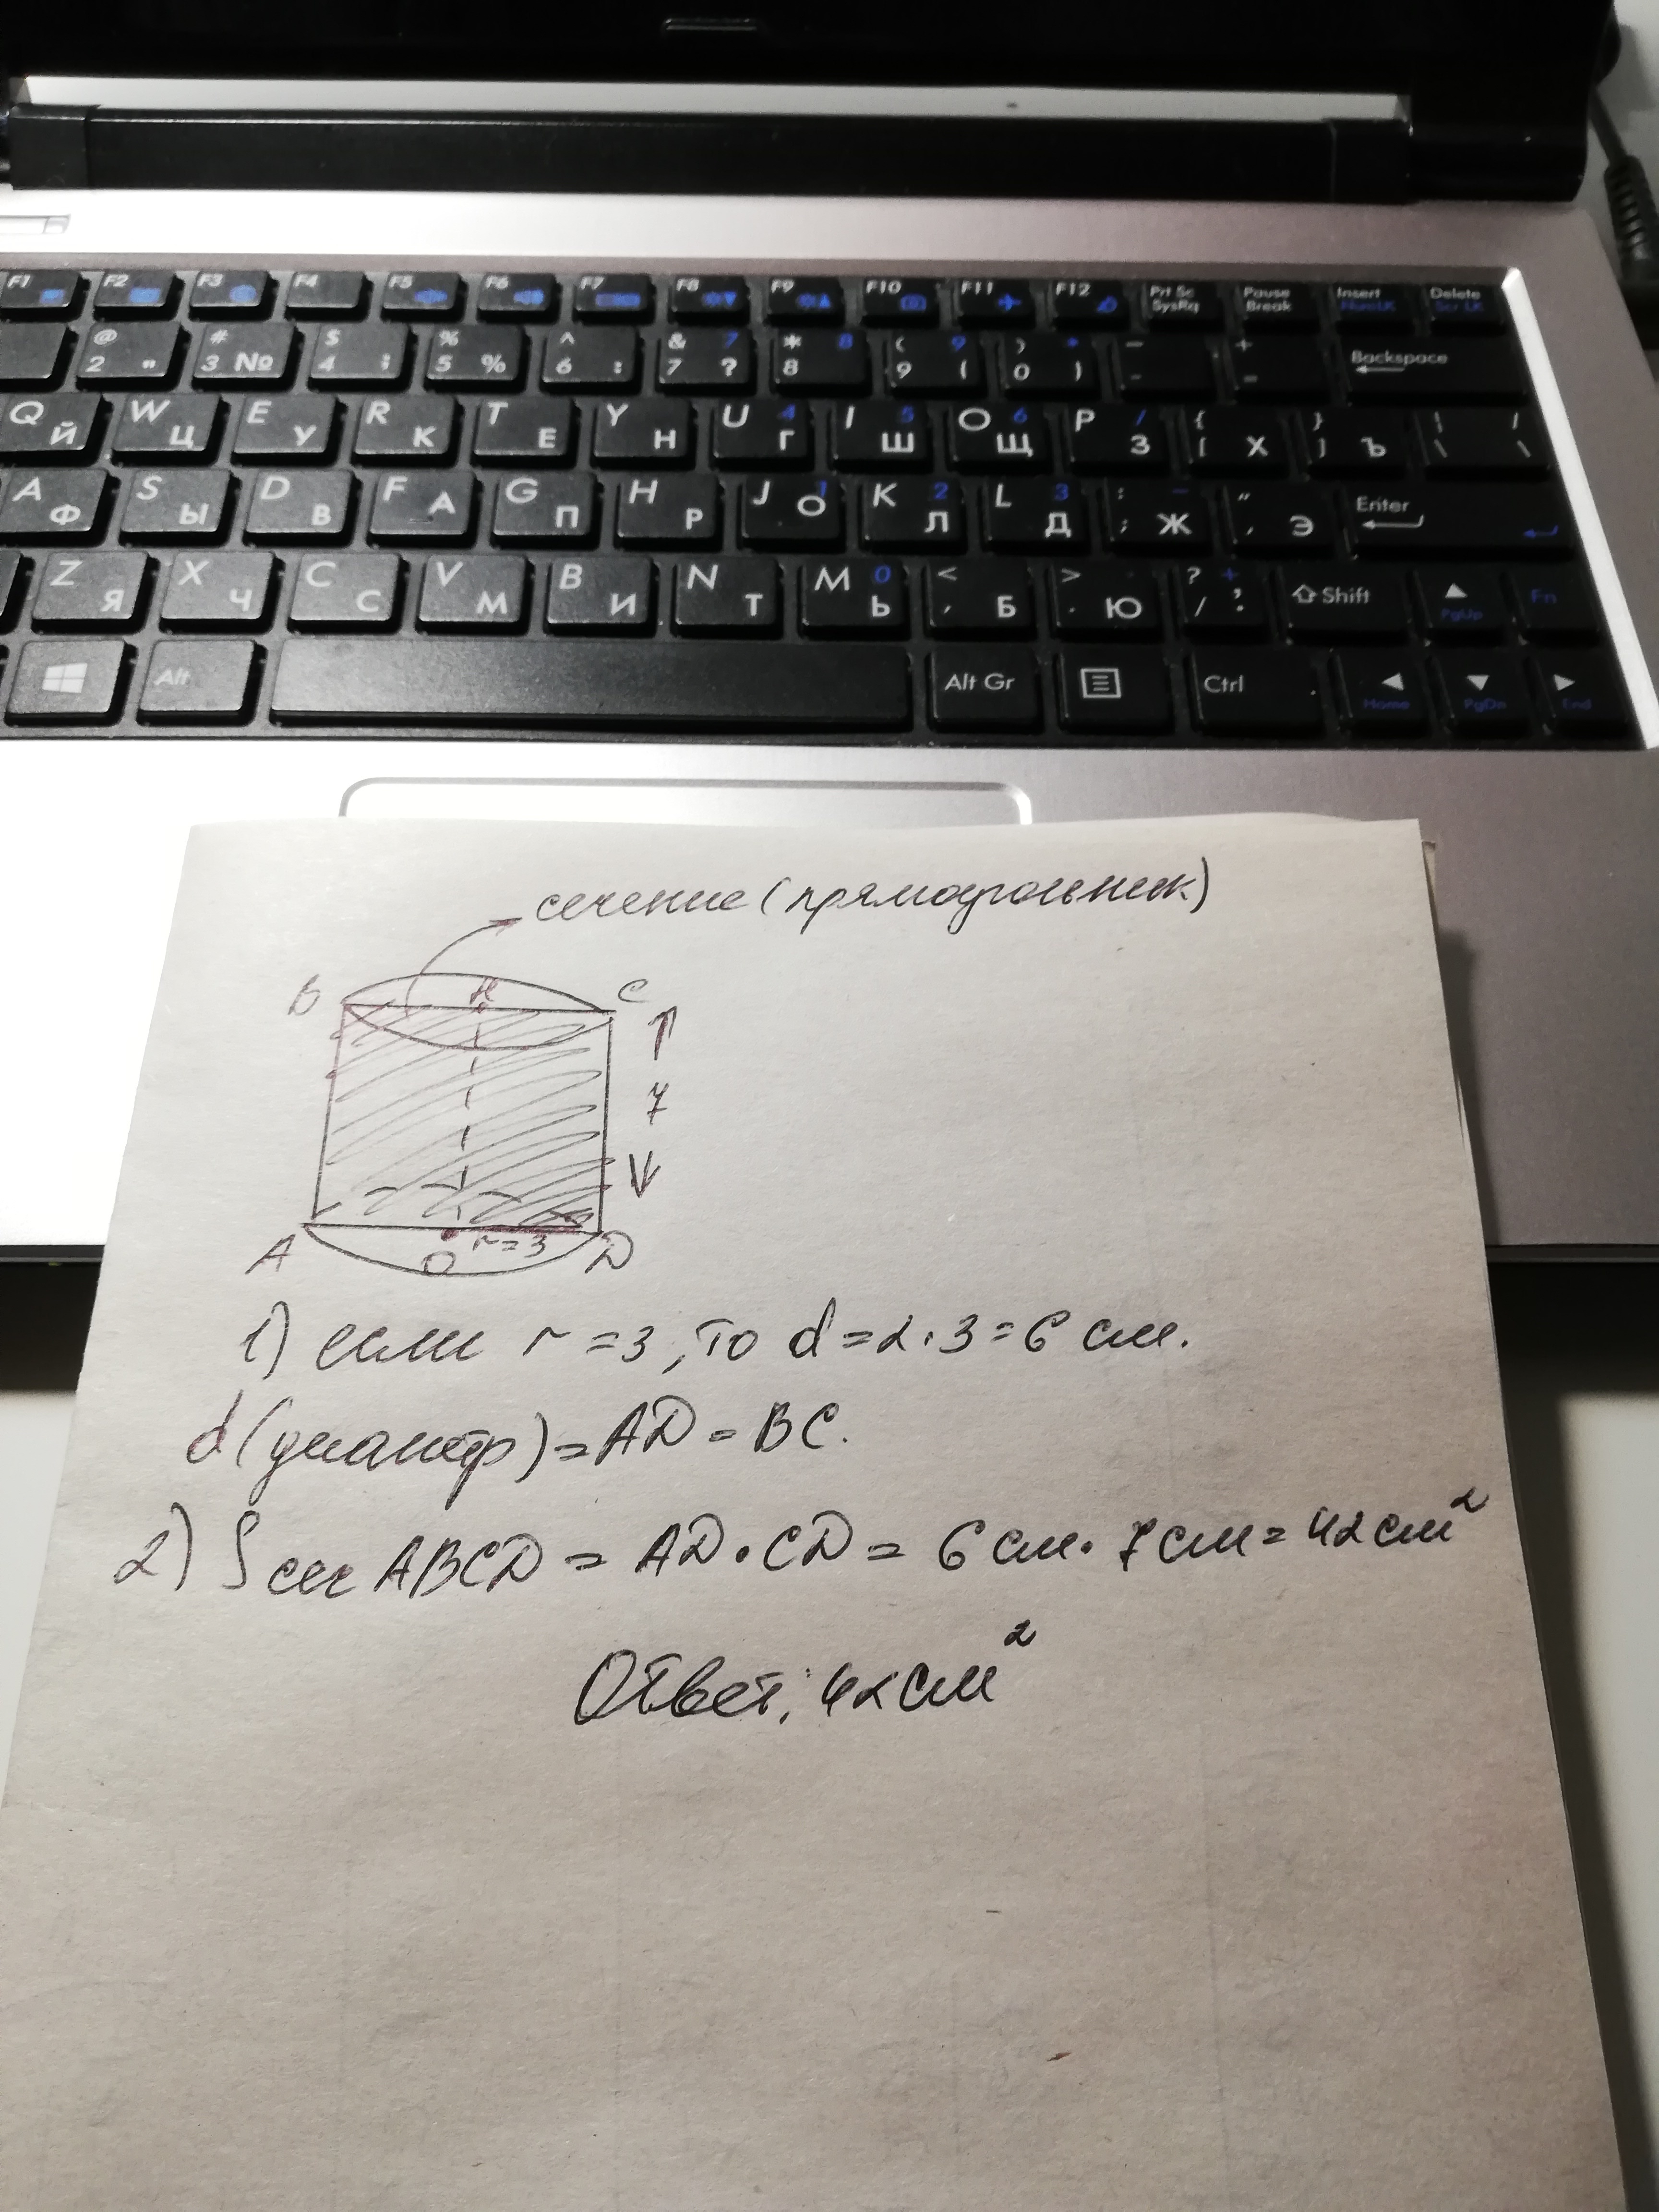 F1 F2 F3 F4 F5 F6 F7 F8 F9 F10 F11 F12 Prt Sc SysRq Pause Break Insert NumLK Delete Scr LK
@ 2 " # 3 № $ 4 ; % 5 % ^ 6 : & 7 7 ? * 8 8 ( 9 9 ( ) 0 * ) _ - + = Backspace
Q Й W Ц E У R К T Е Y Н U 4 Г I 5 Ш O 6 Щ P / З { [ Х } ] Ъ | \ / \
A Ф S Ы D В F А G П H Р J 1 О K 2 Л L 3 Д : ; - Ж " ' Э Enter
Z Я X Ч C С V М B И N Т M 0 Ь < , Б > . Ю ? / + , . Shift PgUp Fn
Alt Alt Gr Ctrl Home PgDn End
сечение (прямоугольник)
B C
7
A O r=3 D
1) если r=3, то d=2·3=6 см.
d(диаметр)=AD=BC.
2) S сеч ABCD = AD·CD = 6 см·7 см=42 см²
Ответ: 42 см²